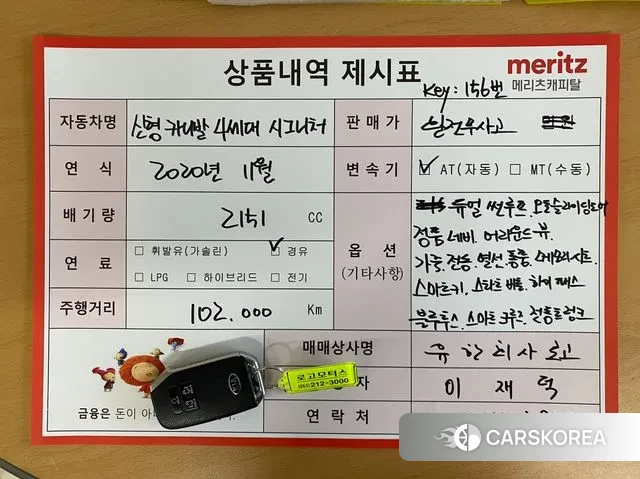 상품내역 제시표
meritz
메리츠캐피탈
Key: 156번
자동차명 신형 카니발 4세대 시그니처
판매가 완전무사고
연 식 2020년 11월
변속기 ☑ AT(자동) ☐ MT(수동)
배기량 2151 CC
옵 션
(기타사항)
듀얼 썬루프, 오토슬라이딩도어
정품 네비, 어라운드 뷰,
가죽, 전동, 열선, 통풍, 메모리시트,
스마트키, 스타트 버튼, 하이패스
블루투스, 스마트 크루즈, 전동트렁크
연 료
☐ 휘발유(가솔린) ☑ 경유
☐ LPG ☐ 하이브리드 ☐ 전기
주행거리 102.000 Km
매매상사명
자 이재덕
연락처
금융은 돈이 아
로고모터스
212-3000
KIA
CARSKOREA